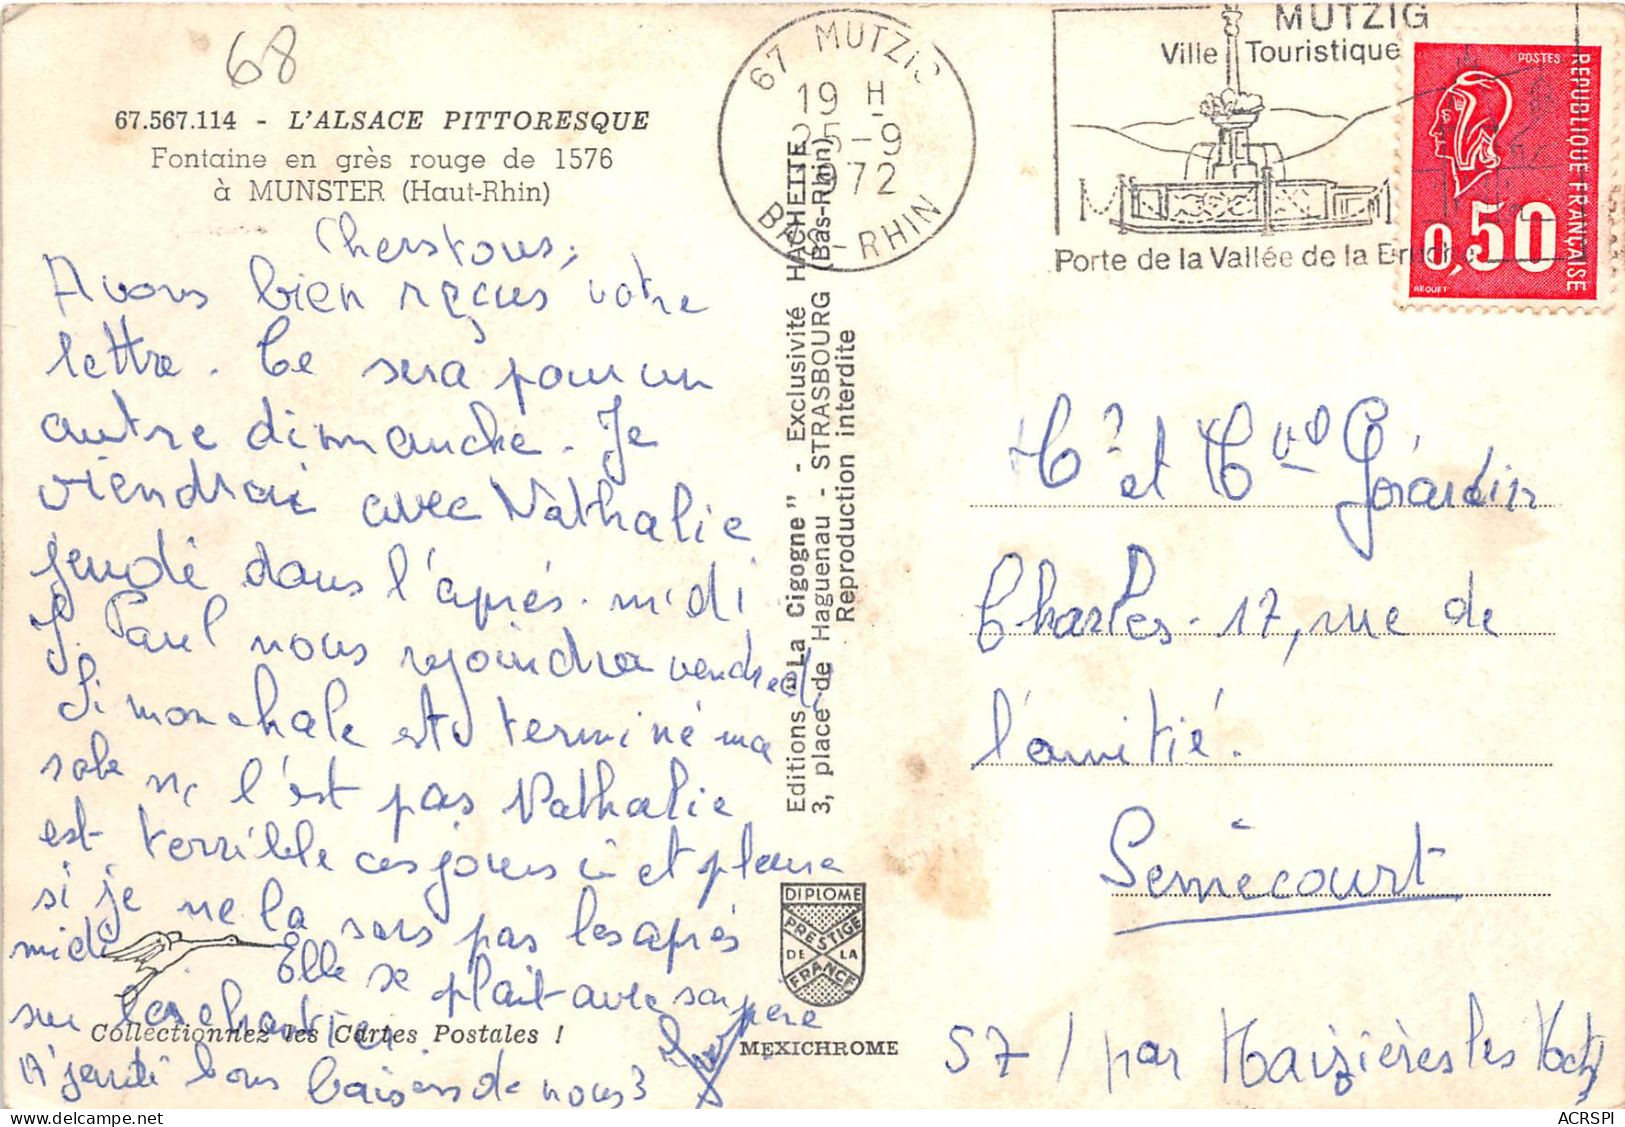 68
67.567.114 - L'ALSACE PITTORESQUE
Fontaine en grès rouge de 1576
à MUNSTER (Haut-Rhin)
Chers tous,
Avons bien reçues votre
lettre. Ce sera pour un
autre dimanche. Je
viendrai avec Nathalie
jeudi dans l'après-midi
J. Paul nous rejoindra vendredi
Si mon chale est terminé ma
robe ne l'est pas Nathalie
est terrible ces jours ci et pleure
si je ne la sors pas les après
midi Elle se plait avec son père
sur les chantier.
A jeudi bons baisers de nous 3
Collectionnez les Cartes Postales !
Editions "La Cigogne" - Exclusivité HACHETTE
3, place de Haguenau - STRASBOURG (Bas-Rhin)
Reproduction interdite
DIPLOME
PRESTIGE
DE LA
FRANCE
MEXICHROME
67 MUTZIG
19 H
25-9
1972
BAS-RHIN
MUTZIG
Ville Touristique
Porte de la Vallée de la Bruche
POSTES
REPUBLIQUE FRANÇAISE
0,50
BEQUET
Mr et Mme Gérardin
Charles - 17, rue de
l'amitié.
Semécourt
57 / par Maizières les Metz
ACRSPI